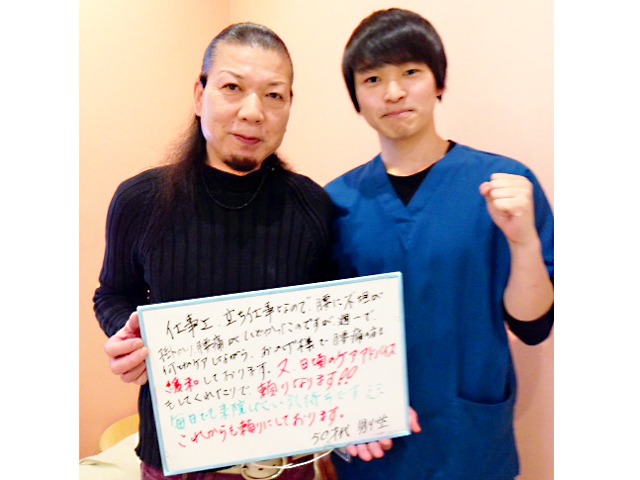 仕事上、立ち仕事なので、腰に負担が
掛かり腰痛がひどかったのですが、週一で、
何度かケアしながら、おかげ様で腰痛の方も
緩和しております。又、日頃のケアアドバイス
もしてくれたりで、頼りになります!!
毎日でも来院したい気持ちです
これからも頼りにしております。
50代 男性